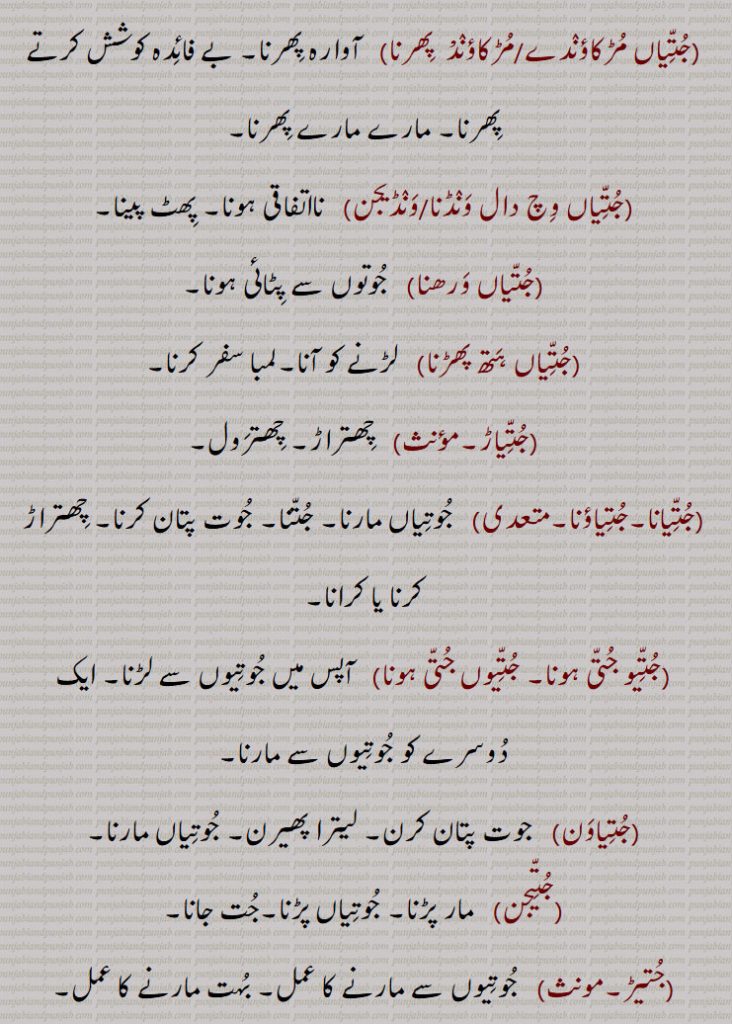 (جُتِّیاں مُڑکاؤنْدے/مُڑکاؤنْدْ پِھرنا) آوارہ پِھرنا۔ بے فائِدہ کوشش کرتے
پِھرنا۔ مارے مارے پِھرنا۔
(جُتِّیاں وِچ دال وَنْڈنا/وَنْڈیجن) نااتفاقی ہونا۔ پِھٹ پینا۔
(جُتِّیاں وَرھنا) جُوتوں سے پِٹائی ہونا۔
(جُتِّیاں ہَتھ پھڑنا) لڑنے کو آنا۔ لمبا سفر کرنا۔
(جُتِّیاڑ۔ مؤنث) چِھتراڑ۔ چِھترَول۔
(جُتِّیانا۔ جُتِیاؤنا۔ متعدی) جُوتِیاں مارنا۔ جُتّنا۔ جُوت پتان کرنا۔ چِھتراڑ
کرنا یا کرانا۔
(جُتِّیو جُتّی ہونا۔ جُتِّیوں جُتّی ہونا) آپس میں جُوتِیوں سے لڑنا۔ ایک
دُوسرے کو جُوتِیوں سے مارنا۔
(جُتِیاوَن) جوت پتان کرن۔ لیترا پھیرن۔ جُوتِیاں مارنا۔
(جُتِّیجن) مار پڑنا۔ جُوتِیاں پڑنا۔ جُت جانا۔
(جُتیڑ۔ مونث) جُوتِیوں سے مارنے کا عمل۔ بُہت مارنے کا عمل۔